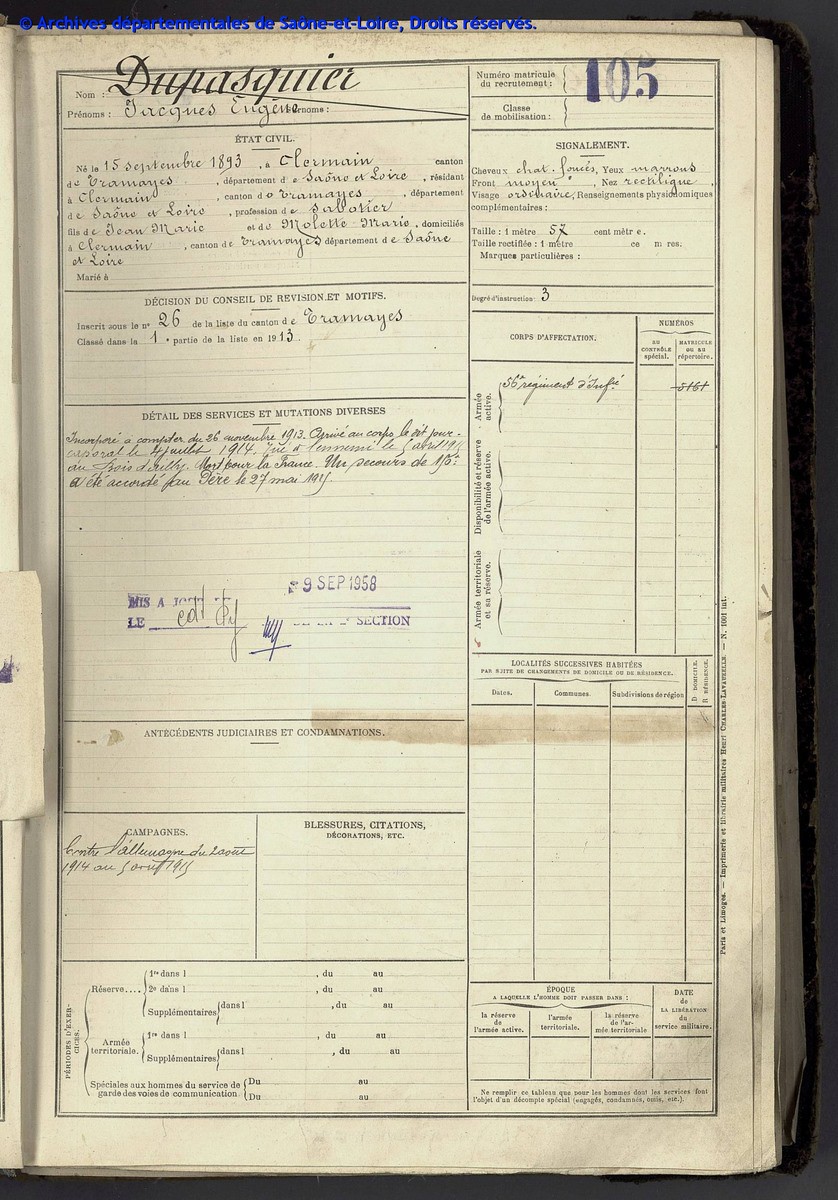 © Archives départementales de Saône-et-Loire, Droits réservés.
Nom : Dupasquier
Prénoms : Jacques Eugène Surnoms :
ÉTAT CIVIL.
Né le 15 septembre 1893, à Clermain canton
de Tramayes, département de Saône et Loire, résidant
à Clermain, canton de Tramayes, département
de Saône et Loire, profession de sabotier
fils de Jean Marie et de Molette Marie, domiciliés
à Clermain, canton de Tramayes département de Saône
et Loire
Marié à
DÉCISION DU CONSEIL DE REVISION ET MOTIFS.
Inscrit sous le n° 26 de la liste du canton de Tramayes
Classé dans la 1e partie de la liste en 1913.
DÉTAIL DES SERVICES ET MUTATIONS DIVERSES
Incorporé à compter du 26 novembre 1913. Arrivé au corps le dit jour.
caporal le 4 juillet 1914. Tué à l'ennemi le 5 avril 1915
au Bois d'Ailly. Mort pour la France. Un secours de 150f
a été accordé au Père le 27 mai 1915
9 SEP 1958
MIS A JOUR
LE
DE LA 2e SECTION
ANTÉCÉDENTS JUDICIAIRES ET CONDAMNATIONS.
CAMPAGNES.
Contre l'Allemagne du 2 août
1914 au 5 avril 1915
BLESSURES, CITATIONS,
DÉCORATIONS, ETC.
PÉRIODES D'EXERCICES.
Réserve....
1re dans l , du au
2e dans l , du au
Supplémentaires dans l , du au
Armée territoriale.
1re dans l , du au
Supplémentaires dans l , du au
Spéciales aux hommes du service de garde des voies de communication.
Du au
Du au
Numéro matricule
du recrutement :
105
Classe
de mobilisation :
SIGNALEMENT.
Cheveux chat. foncés, Yeux marrons
Front moyen, Nez rectiligne,
Visage ordinaire, Renseignements physionomiques
complémentaires :
Taille : 1 mètre 57 centimètre.
Taille rectifiée : 1 mètre ce m res.
Marques particulières :
Degré d'instruction : 3
CORPS D'AFFECTATION.
NUMÉROS
AU CONTRÔLE spécial.
MATRICULE OU AU répertoire.
Armée active.
56e régiment d'Infie
5161
Disponibilité et réserve de l'armée active.
Armée territoriale et sa réserve.
LOCALITÉS SUCCESSIVES HABITÉES
PAR SUITE DE CHANGEMENTS DE DOMICILE OU DE RÉSIDENCE.
Dates.
Communes.
Subdivisions de région
D. DOMICILE.
R. RÉSIDENCE.
ÉPOQUE
A LAQUELLE L'HOMME DOIT PASSER DANS :
la réserve de l'armée active.
l'armée territoriale.
la réserve de l'armée territoriale
DATE de LA LIBÉRATION du service militaire.
Ne remplir ce tableau que pour les hommes dont les services font
l'objet d'un décompte spécial (engagés, condamnés, omis, etc.).
Paris et Limoges. — Imprimerie et librairie militaires Henri CHARLES-LAVAUZELLE. — N. 1001 int.